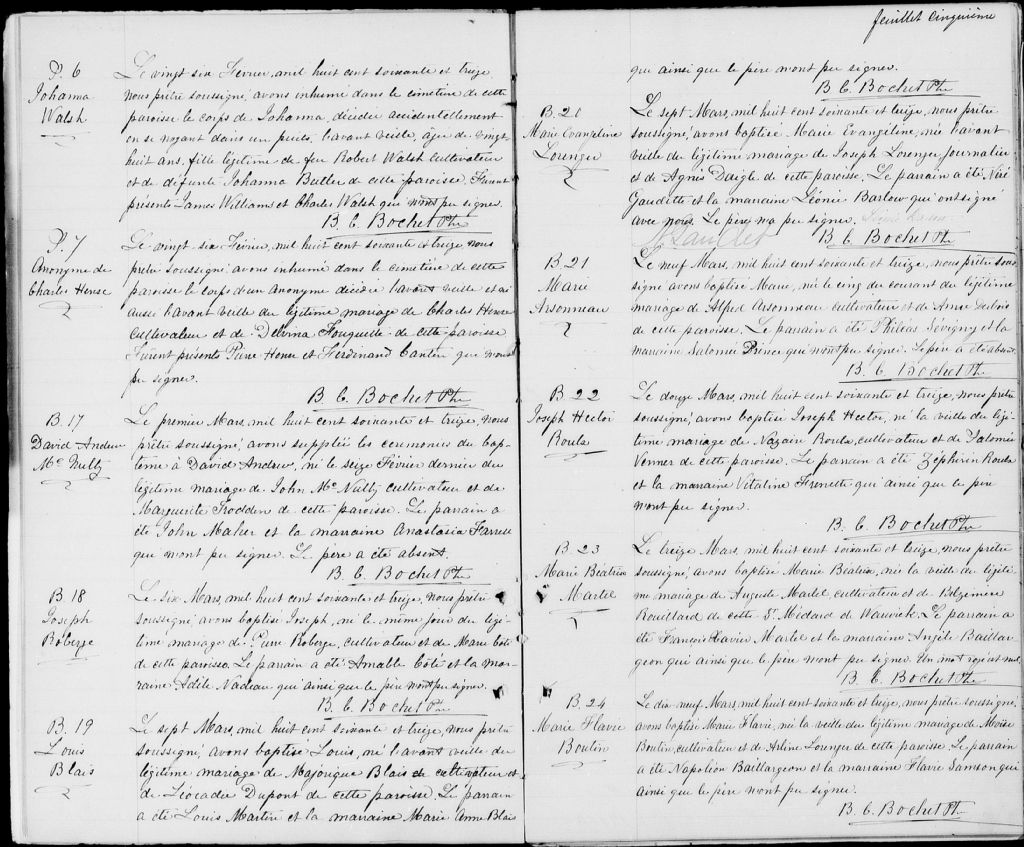 S. 6
Johanna
Walsh
Le vingt six Fevrier, mil huit cent soixante et treize
nous prêtre soussigné, avons inhumé dans le cimetière de cette
paroisse le corps de Johanna, décidée accidentellement
en se noyant dans un puits, l'avant veille, agée de vingt
huit ans, fille légitime de feu Robert Walsh cultivateur
et de défunte Johanna Butler de cette paroisse. Furent
présents James Williams et Charles Walsh qui n'ont pu signer.
B. C. Bochet Ptre
S. 7
Anonyme de
Charles House
Le vingt six Février, mil huit cent soixante et treize nous
prêtre soussigné avons inhumé dans le cimetière de cette
paroisse le corps d'un Anonyme décidée l'avant veille et né
aussi l'avant veille du légitime mariage de Charles House
cultivateur et de Delvina Fouquette de cette paroisse
Furent présents Pierre House et Ferdinand Cantin qui n'ont
pu signer.
B. C. Bochet Ptre
B. 17
David Andrew
Mc Nulty
Le premier Mars, mil huit cent soixante et treize, nous
prêtre soussigné, avons supplée les ceremonies du bap-
tême à David Andrew, né le seize Février dernier du
légitime mariage de John Mc Nulty cultivateur et de
Marguerite Frodden de cette paroisse. Le parrain a
été John Maher et la marraine Anastasia Farrell
qui n'ont pu signer. Le père a été absent.
B. C. Bochet Ptre
B. 18
Joseph
Roberge
Le six Mars, mil huit cent soixante et treize, nous prêtre
soussigné, avons baptisé Joseph, né le même jour du légi-
time mariage de Pierre Roberge, cultivateur et de Marie Coté
de cette paroisse. Le parrain a été Amable Côté et la mar-
raine Adèle Nadeau qui ainsi que le père n'ont pu signer.
B. C. Bochet Ptre
B. 19
Louis
Blais
Le sept Mars, mil huit cent soixante et treize, nous prêtre
soussigné, avons baptisé Louis, né l'avant veille du
légitime mariage de Majorique Blais cultivateur et
de Léocadie Dupont de cette paroisse. Le parrain
a été Louis Martin et la marraine Marie Anne Blais
feuillet cinquième
qui ainsi que le père n'ont pu signer.
B. C. Bochet Ptre
B. 20
Marie Evangeline
Lorenger
Le sept Mars, mil huit cent soixante et treize, nous prêtre
soussigné, avons baptisé Marie Evangéline, née l'avant
veille du légitime mariage de Joseph Lorenger Journalier
et de Agnès Daigle de cette paroisse. Le parrain a été Néré
Gaudette et la marraine Léonie Barlow qui ont signé
avec nous. Le père n'a pu signer.
B. C. Bochet Ptre
B. 21
Marie
Arsonneau
Le neuf Mars, mil huit cent soixante et treize, nous prêtre sous-
signé avons baptisé Marie, née le cinq du courant du légitime
mariage de Alfred Arsonneau cultivateur et de Anne
de cette paroisse. Le parrain a été Philéas Sévigny et la
marraine Salomée Prince qui n'ont pu signer. Le père a été absent.
B. C. Bochet Ptre
B. 22
Joseph Hector
Roula
Le douze Mars, mil huit cent soixante et treize, nous prêtre
soussigné, avons baptisé Joseph Hector, né la veille du légi-
time mariage de Nazaire Roula, cultivateur et de Salomée
Verner de cette paroisse. Le parrain a été Zéphirin Roula
et la marraine Vitaline Frenette qui ainsi que le père
n'ont pu signer.
B. C. Bochet Ptre
B. 23
Marie Béatrix
Martel
Le treize Mars, mil huit cent soixante et treize, nous prêtre
soussigné, avons baptisé Marie Béatrix, née la veille du légiti-
me mariage de Auguste Martel cultivateur et de Belzemire
Rouillard de cette St Médard de Warwick. Le parrain a
été François Xavier Martel et la marraine Angèle Baillar-
geon qui ainsi que le père n'ont pu signer. Un mot rayé est nul.
B. C. Bochet Ptre
B. 24
Marie Flavie
Boutin
Le dix neuf Mars, mil huit cent soixante et treize, nous prêtre soussigné,
avons baptisé Marie Flavie, née la veille du légitime mariage de Moïse
Boutin, cultivateur et de Arline Lorenger de cette paroisse. Le parrain
a été Napoléon Baillargeon et la marraine Flavie Samson qui
ainsi que le père n'ont pu signer.
B. C. Bochet Ptre